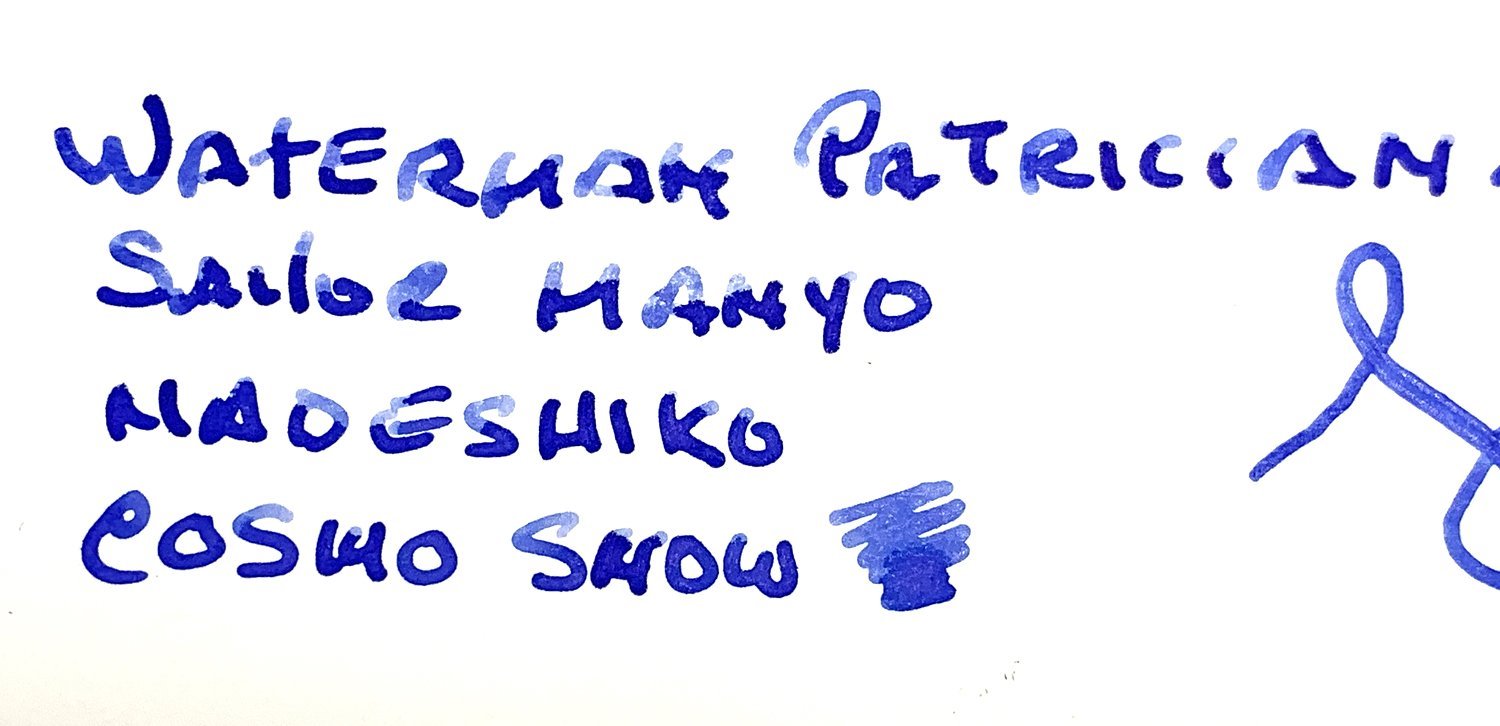 WATERMAN PATRICIAN.
SAILOR MANYO
NADESHIKO
COSMO SNOW